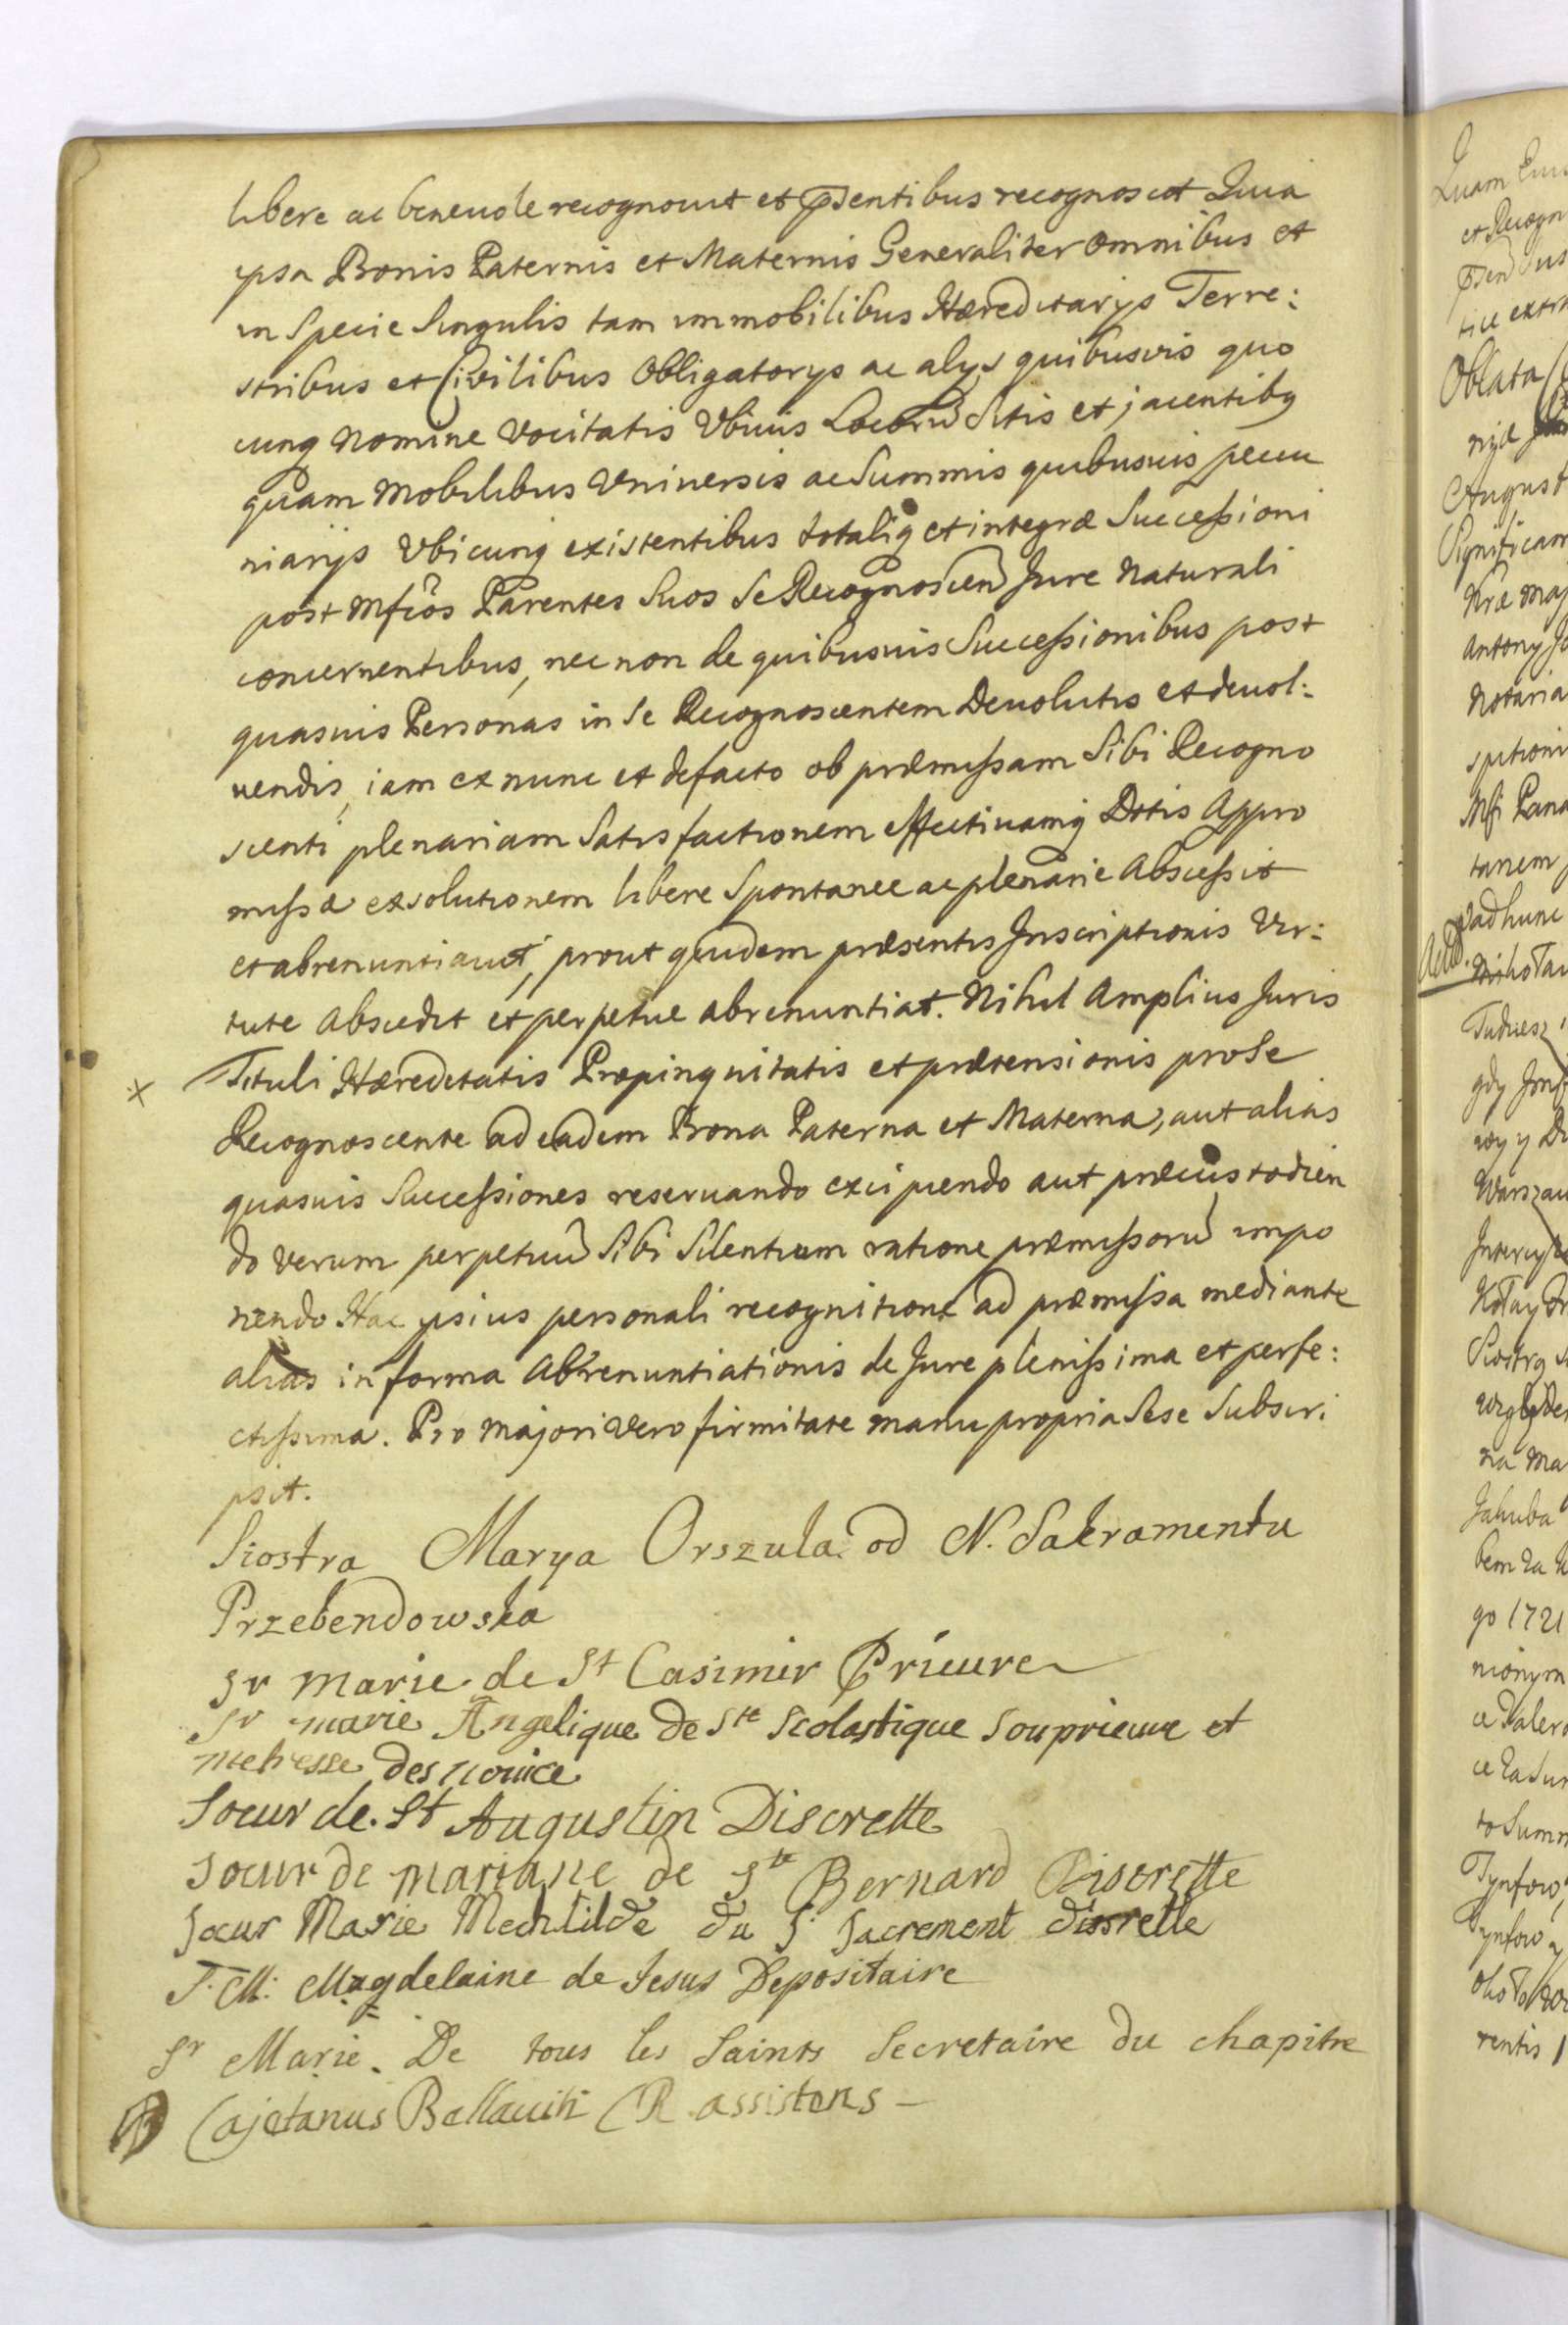 libere ac beneuole recognouit et p̄sentibus recognoscit Quia
ipsa Bonis Paternis et Maternis Generaliter omnibus et
in Specie Singulis tam immobilibus Hæreditarijs Terre:
stribus et Civilibus Obligatorijs ac alijs quibusvis quo
cunq Nomine Vocitatis Vbiuis Locorū Sitis et jacentibq
quam Mobilibus Vniuersis ac Summis quibusuis pecu
niarijs Vbicunq existentibus totaliq et integræ Successioni
post Mfcos Parentes Suos Se Recognoscen Jure Naturali
concernentibus, nec non de quibusuis Successionibus post
quasuis Personas in Se Recognoscentem Deuolutis et deuol:
uendis, iam ex nunc et de facto ob præmissam Sibi Recogno
scenti plenariam Satisfactionem effectiuamq Dotis Appro
missæ exsolutionem libere Spontanee ac plenarie Abscessit
et abrenuntiauit, prout quidem præsentis Inscriptionis Vir:
tute Abscedit et perpetue abrenuntiat. Nihil Amplius Juris
× Tituli Hæreditatis Propinquitatis et prætensionis pro Se
Recognoscente ad eadem Bona Paterna et Materna, aut alias
quasuis Successiones reseruando excipiendo aut præcustodien
do Verum perpetuū Sibi Silentium ratione præmissorū impo
nendo Hac ipsius personali recognitione ad præmissa mediante
alias in forma Abrenuntiationis de Jure plenissima et perfe:
ctissima. Pro Majori Vero firmitate manu propria Sese Subscri
psit.
Siostra Marya Orszula od N. Sakramentu
Przebendowska
Sr Marie de St Casimir Prieure
Sr marie Angelique De Ste Scolastique Souprieure et
metresse des nouice
Soeur de St Augustin Discrette
Soeur de mariane de Ste Bernard Discrette
Soeur Marie Mechtilde du St Sacrement discrette
S. M: Magdelaine de Jesus Depositaire
Sr Marie De tous les Saints Secretaire du chapitre
Cajetanus Bellauiti CR assistens
Quam
et Recogn
Oblata
August
Significam
Antony
Notaria
tanem
ad hunc
Actd.
gdy
Warszaw
na Ma
Jakuba
go 1721
to Summ
Tynfow
rentis